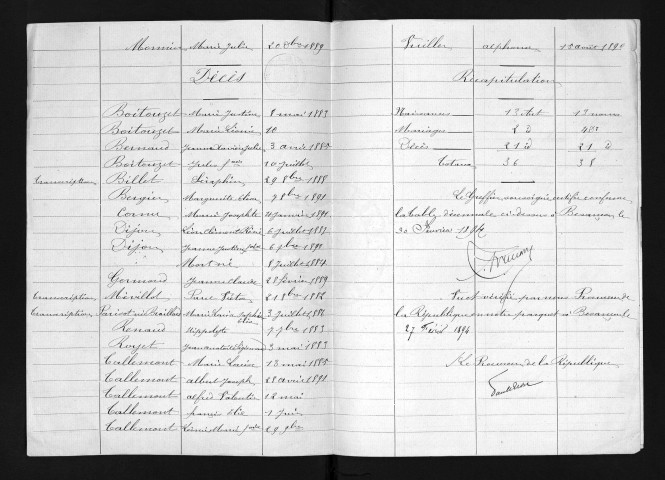 Monnier Marie Julie 20 Xbre 1889
Décès
Boitouzet Marie Justine 8 mai 1883
Boitouzet Marie Léonie 10
Bernaud Jeanne 3 avril 1885
Boitouzet Jules 10 Juillet
transcription Billet Séraphin 29 8bre 1888
Bergier Marguerite 7 8bre 1891
Cornu Marie Josephte 4 Janvier 1891
Dijon Léon Clément René 6 Juillet 1889
Dijon Jeanne 6 9bre 1890
" Mort né 8 Juillet 1884
Germond Jeanne Claude 28 février 1889
transcription Mévillot 21 8bre 1882
transcription Marie Louise 3 Juillet 1886
Renaud Hippolyte 7 9bre 1883
Royet 3 mai 1883
Callemont Marie Louise 13 mai 1885
Callemont Albert Joseph 28 avril 1891
Callemont Alfred Valentin 12 mai
Callemont 1 Juin
Callemont Léonie Marie 29 9bre
Vieillet alphonse 12 août 1890
Récapitulation
Naissances 13 13 noms
Mariages 2 d° 4 d°
Décès 21 d° 21 d°
Totaux 36 38
Le Greffier soussigné certifie conforme
la table décennale ci-dessus à Besançon le
30 Janvier 1894
Vu et vérifié par nous Procureur de
la République en notre parquet à Besançon le
27 Février 1894
Le Procureur de la République